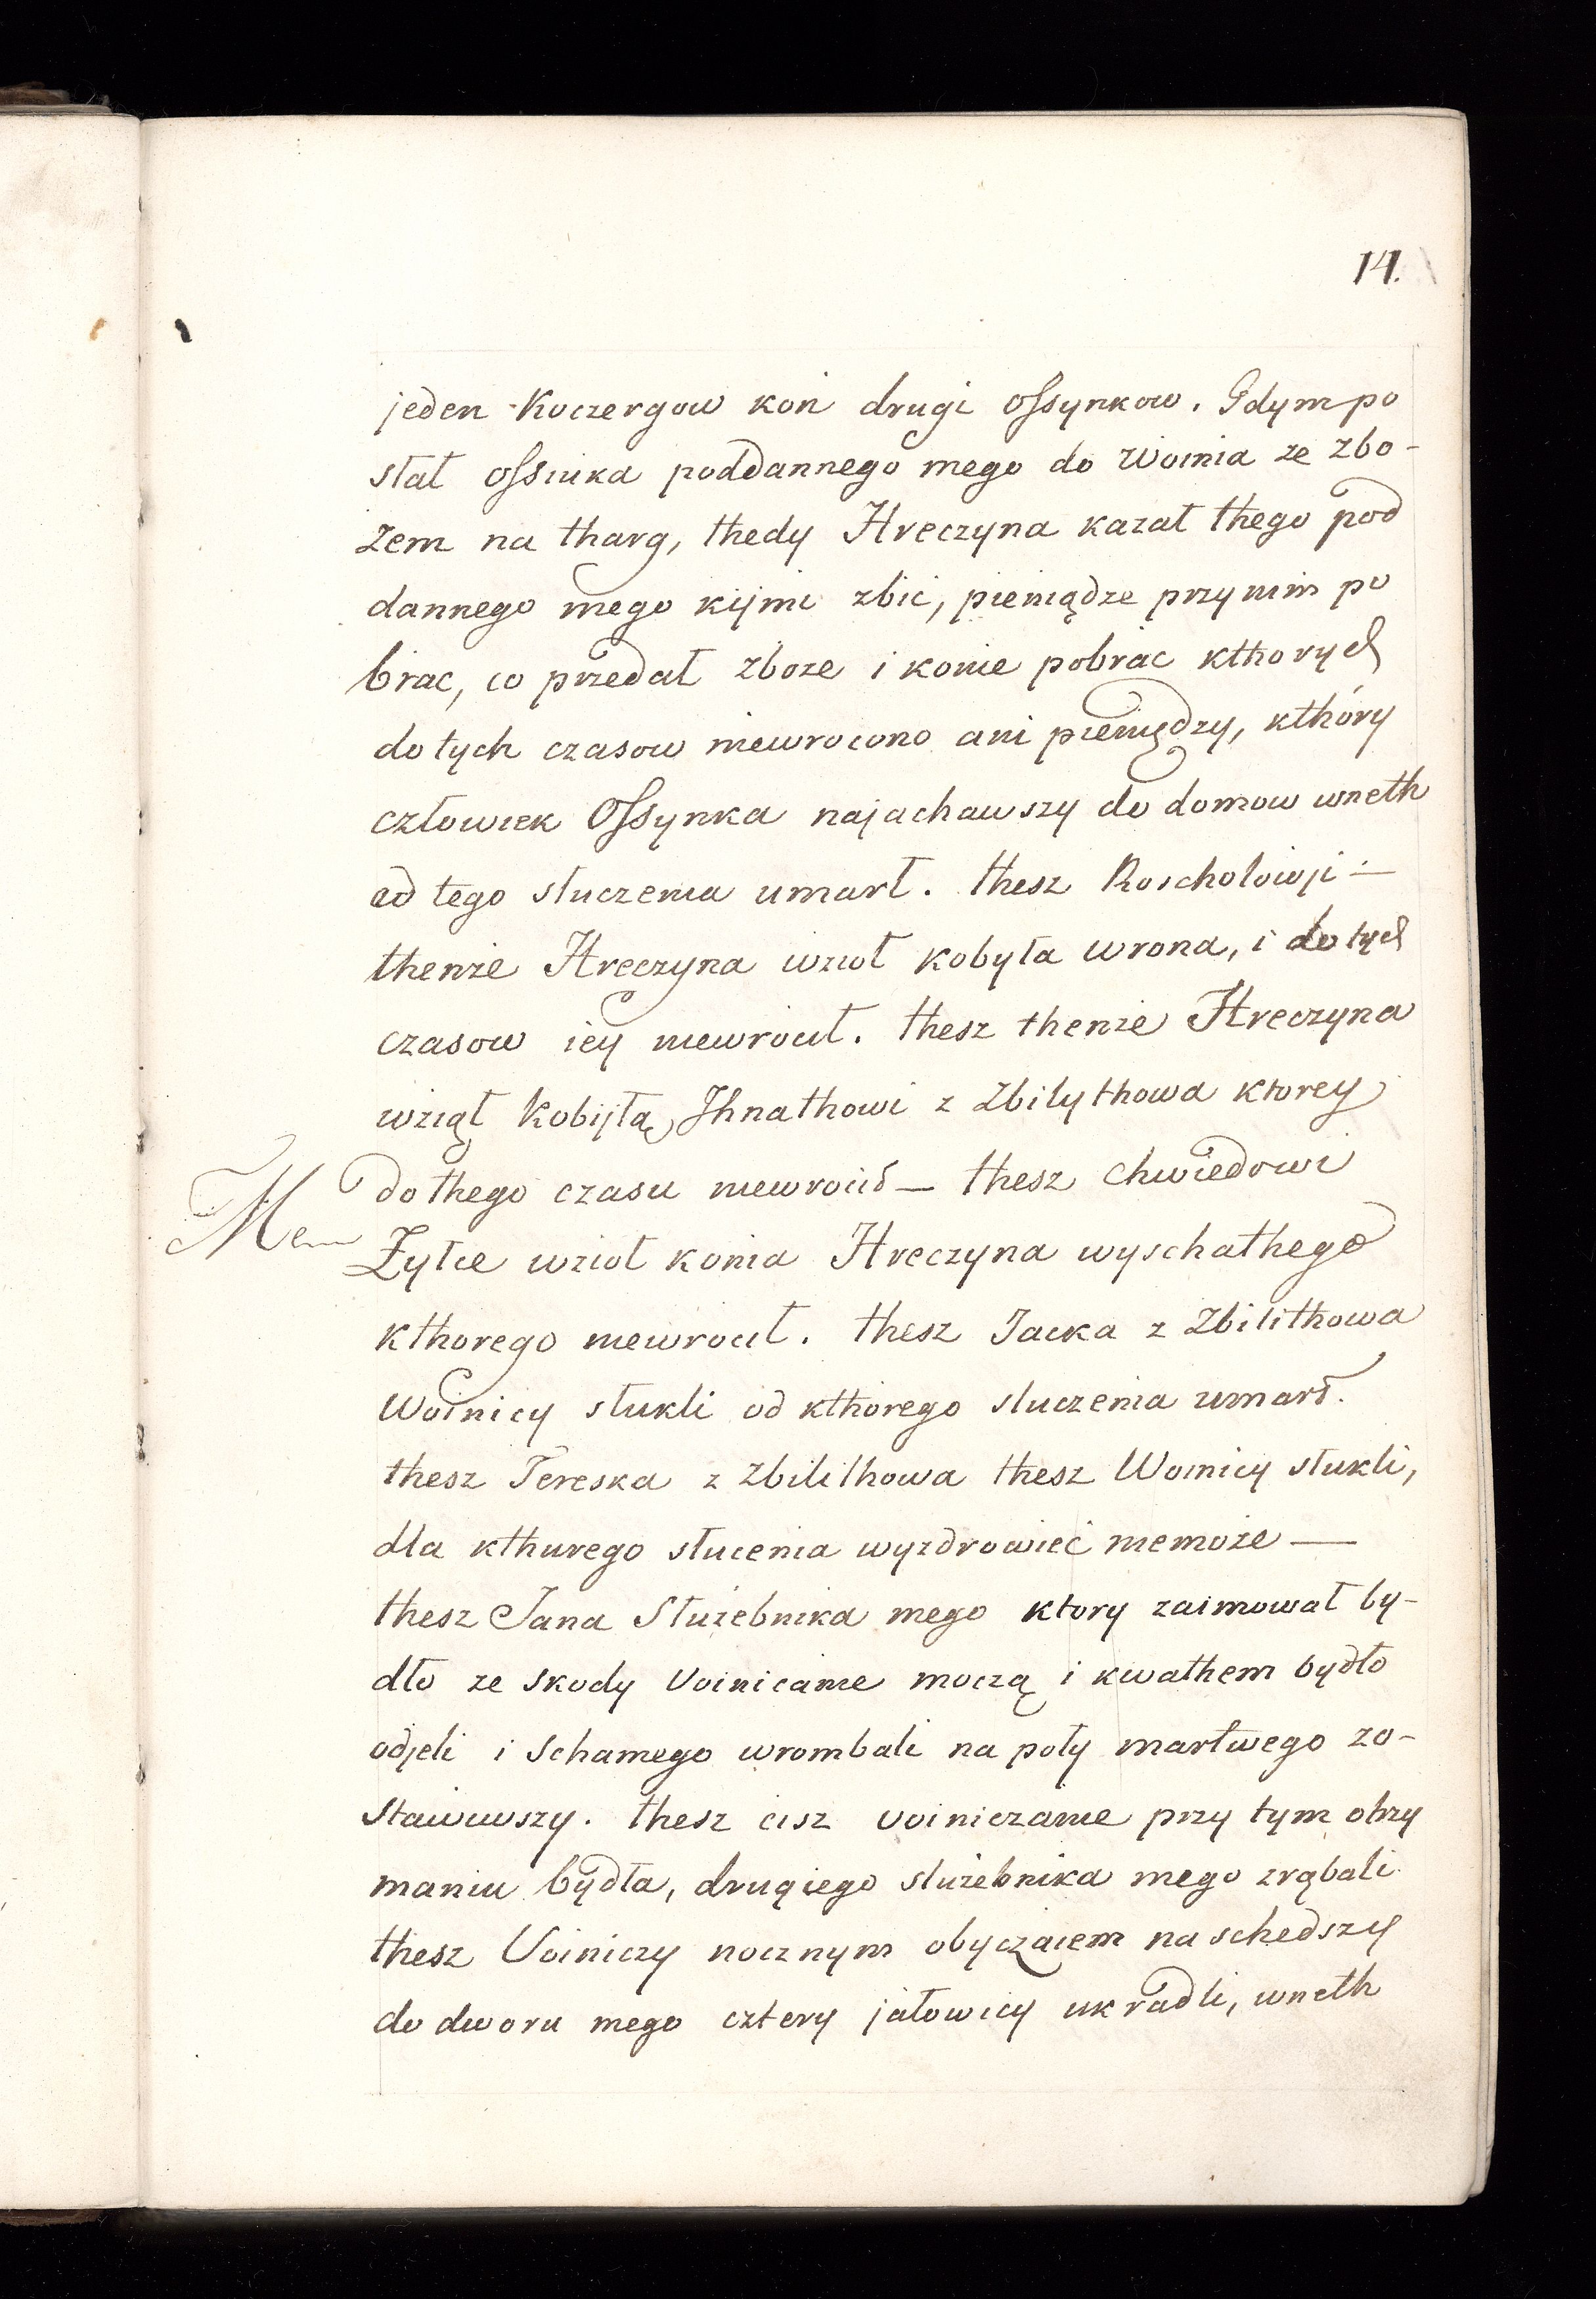 14.
jeden Koczergow koń drugi oſsynkow. Gdym po
stał oſsinka poddannego mego do Woinia ze zbo-
żem na tharg, thedy Hreczyna kazał thego pod
dannego mego kijmi zbić, pieniądze przy nim po
brac, co przedał zboze i konie pobrac kthorych
do tych czasow niewrocono ani pieniędzy, kthóry
człowiek Oſsynka najachawszy do domow wneth
od tego stuczenia umarł. thesz Roscholowji —
thenże Hreczyna wzioł kobyła wrona, i do tych
czasow iey niewrocił. thesz thenże Hreczyna
wziął Kobijłą Jhnathowi z Zbilythowa ktorey
do thego czasu niewrocił — thesz Chwiedowi
Mem
Zyłce wzioł konia Hreczyna wyschathego
kthorego niewrocił. thesz Jacka z Zbilithowa
Woinicy stukli od kthorego stuczenia umarł.
thesz Tereska z Zbilithowa thesz Woinicy stukli,
dla kthurego stucenia wyzdrowieć niemoże —
thesz Jana Służebnika mego ktory zaimował by-
dło ze skody Voinicanie moczą i kwathem bydło
odjeli i schamego wrombali na poły martwego zo-
stawiwszy. thesz cisz voiniczanie przy tym otrzy
maniu bydła, drugiego służebnika mego zrąbali
thesz Voiniczy nocznym obyczaiem naschedszy
do dworu mego cztery jałowicy ukradli, wneth